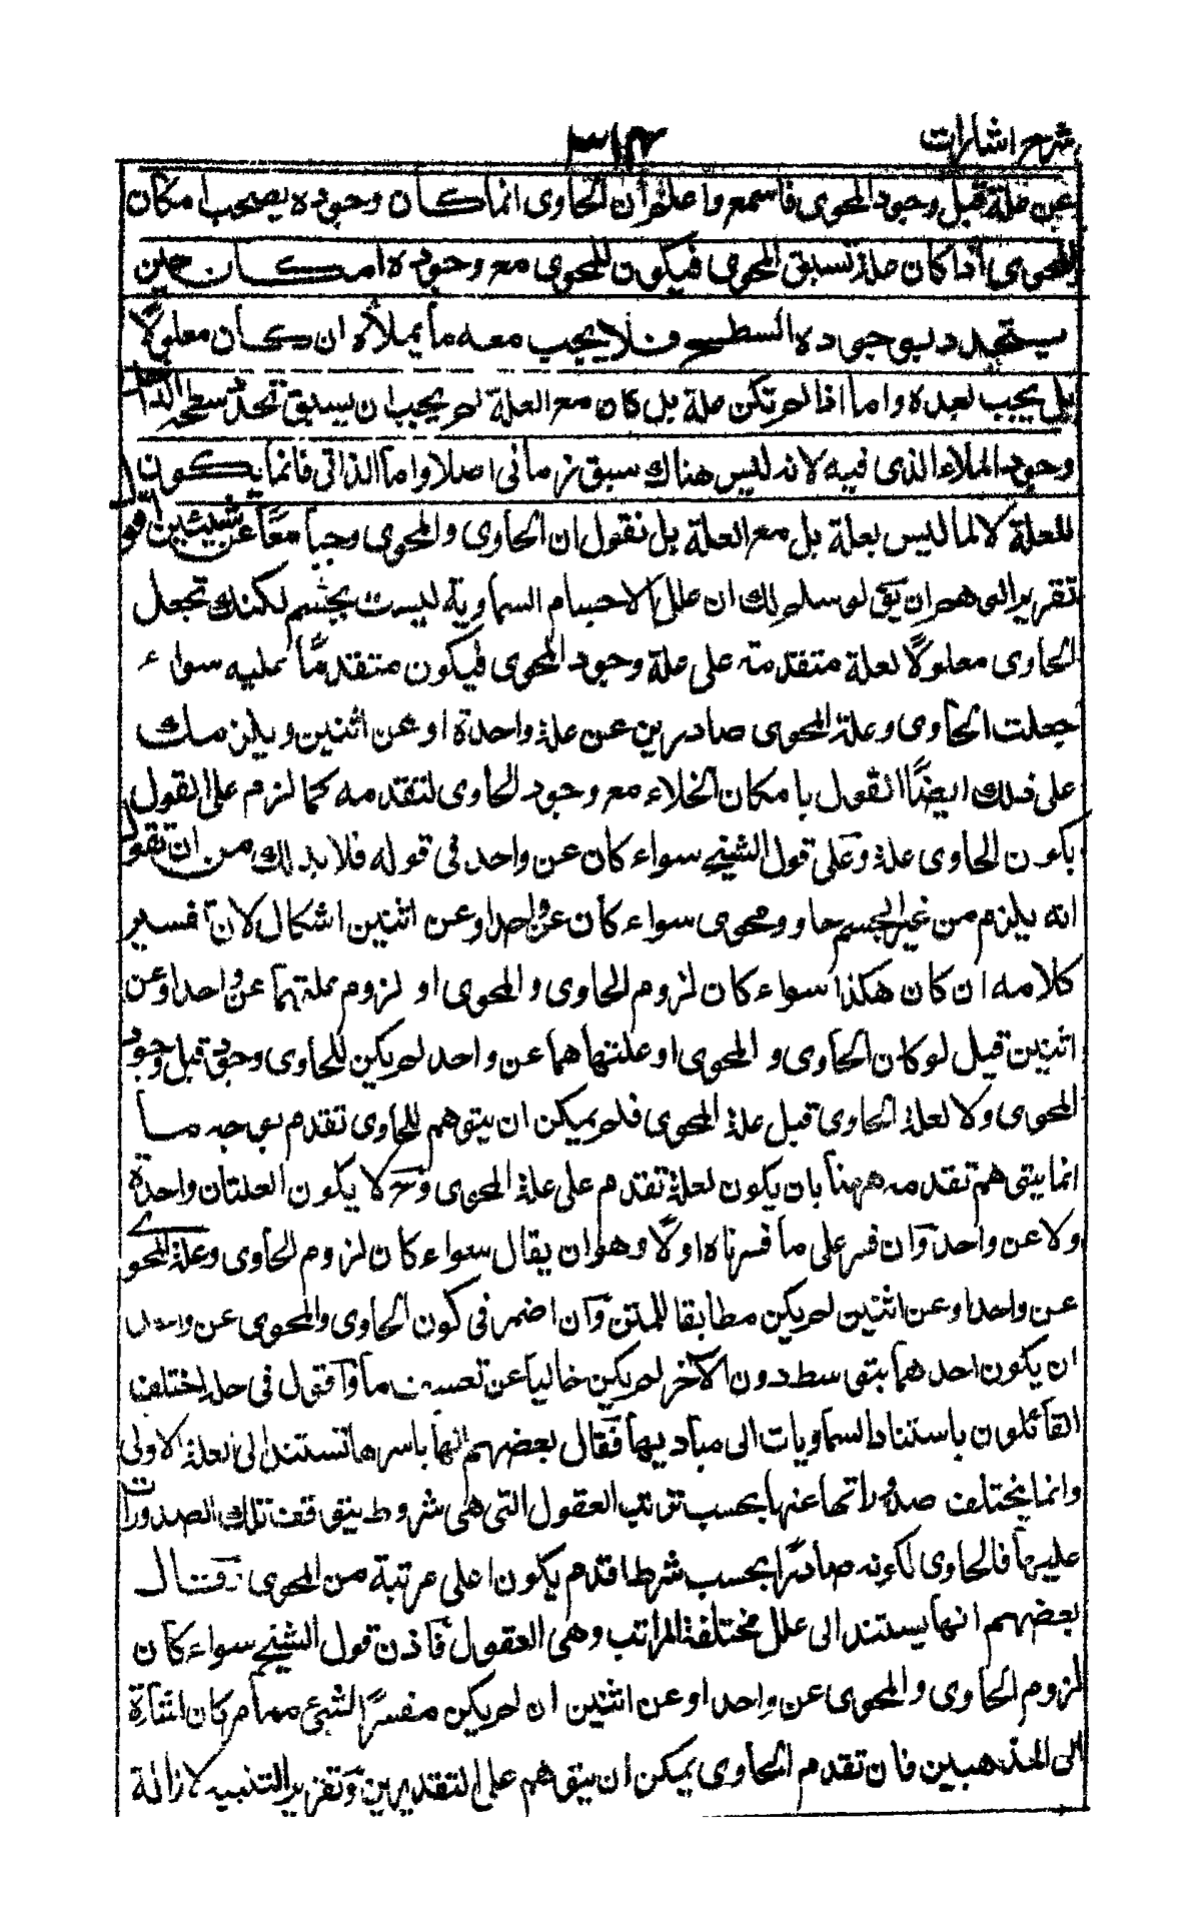 شرح اشارات
٣١٤
عن علة قبل وجود المحوى فاسمع واعلم أن الحاوى انما كان وجوده يصحب امكان
المحوى اذا كان علة تسبق المحوى فيكون للمحوى مع وجوده امكان حين
يتحدد بوجوده السطح فلا يجب معه ما يملأه ان كان معلولا
بل يجب بعده واما اذا لم تكن علة بل كان مع العلة لم يجب ان يسبق تحدد سطحه الداخل
وجود الملاء الذى فيه لانه ليس هناك سبق زمانى اصلا واما الذاتى فانما يكون
للعلة لا لما ليس بعلة بل مع العلة بل نقول ان الحاوى والمحوى وجبا معًا عن شيئين
تقرير الوهم ان يق لو سلم لك ان علل الاجسام السماوية ليست بجسم لكنك تجعل
الحاوى معلولًا لعلة متقدمة على علة وجود المحوى فيكون متقدمًا عليه سواء
جعلت الحاوى وعلة المحوى صادرين عن علة واحدة او عن اثنين ويلزمك
على ذلك ايضًا القول بامكان الخلاء مع وجود الحاوى لتقدمه كما لزم على القول
بكون الحاوى علة وعلى قول الشيخ سواء كان عن واحد فى قوله فلا بد لك من ان تقول
انه يلزم من غير الجسم حاو ومحوى سواء كان عن واحد او عن اثنين اشكال لان تفسير
كلامه ان كان هكذا سواء كان لزوم الحاوى والمحوى او لزوم علتهما عن واحد او عن
اثنين قيل لو كان الحاوى والمحوى او علتهما هما عن واحد لم يكن للحاوى وجود قبل وجود
المحوى ولا لعلة الحاوى قبل علة المحوى فلم يمكن ان يتوهم للحاوى تقدم بوجه ما
انما يتوهم تقدمه ههنا بان يكون لعلة تقدم على علة المحوى وح لا يكون العلتان واحدة
ولا عن واحد وان فسر على ما فسرناه اولًا وهو ان يقال سواء كان لزوم الحاوى وعلة المحوى
عن واحد او عن اثنين لم يكن مطابقا للمتن وان اضمر فى كون الحاوى والمحوى عن واحد
ان يكون احدهما بتوسط دون الآخر لم يكن خاليا عن تعسف ما واقول فى حله اختلف
القائلون باستناد السماويات الى مباديها فقال بعضهم انها باسرها تستند الى العلة الاولى
وانما يختلف صدوراتها عنها بحسب ترتب العقول التى هى شروط يتوقف تلك الصدورات
عليها فالحاوى لكونه صادرًا بحسب شرط اقدم يكون اعلى مرتبة من المحوى وقال
بعضهم انها يستند الى علل مختلفة المراتب وهى العقول فاذن قول الشيخ سواء كان
لزوم الحاوى والمحوى عن واحد او عن اثنين ان لم يكن مفسرًا لشئ مما مر كان اشارة
الى المذهبين فان تقدم الحاوى يمكن ان يتوهم على التقديرين وتقرير التنبيه لازالة